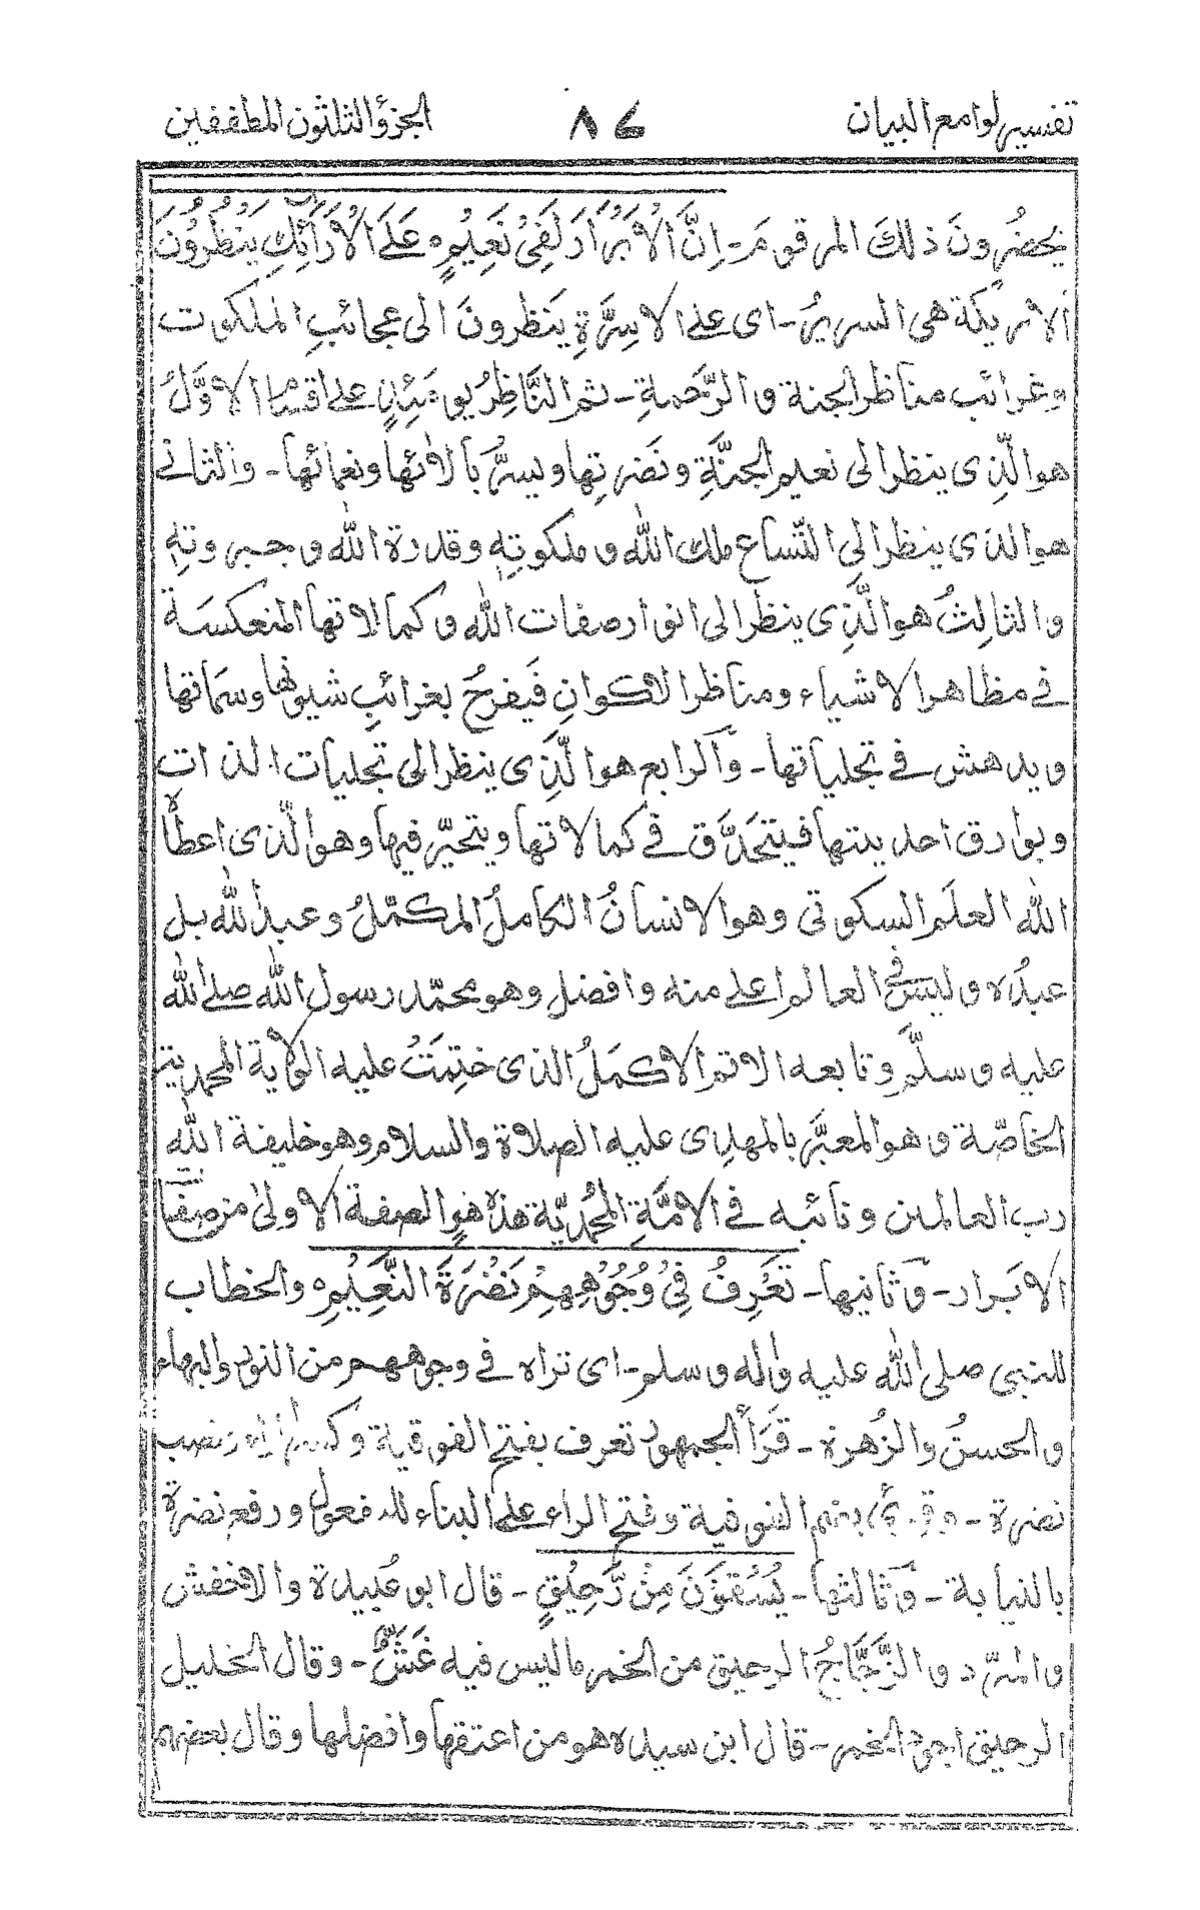 تفسير لوامع البيان ٨٤ الجزؤ الثلثون المطففين
يحضرونَ ذلكَ المرقومَ - اِنَّ الْاَبْرَارَ لَفِيْ نَعِيْمٍ ه عَلَى الْاَرَآئِكِ يَنْظُرُوْنَ
الاريكة هى السريرُ - اى على الاسِرَّةِ يَنظرونَ الى عجائبِ الملكوت
وغرائب مناظر الجنة والرَّحمةِ - ثم النَّاظِرُ يومَئِذٍ على اقسام الاوَّلُ
هو الّذى ينظر الى نعيم الجنَّةِ ونَضرتِها ويسرُّ بآلائها ونعمائها - والثانى
هو الذى ينظر الى اتّساع ملك الله وملكوتِهٖ وقدرة الله وجبروتِهٖ
والثالِثُ هو الَّذِى ينظر الى انوار صفات الله وكمالاتها المنعكسَة
فى مظاهر الاشياء ومناظر الاكوانِ فَيفرحُ بغرائبِ شيونها وسمَاتها
ويدهش فى تجلياتها - وآلرابع هو الَّذِى ينظر الى تجليات الذات
وبوارق احديتها فيتحَدَّق فى كمالاتها ويتحيّر فيها وهو الّذى اعطاه
الله العلَم السكوتى وهو الانسانُ الكاملُ المكمّلُ وعبدُ لله بل
عبدُه وليسَ فى العالم اعلى منه وافضل وهو محمّد رسول الله صلى الله
عليه وسلَّم وتابعه الاتم الاكمَلُ الذى ختِمَتْ عليه الولاية المحمدية
الخاصّة وهو المعبَّر بالمهدِى عليه الصلاة والسلام وهو خليفة الله
رب العالمين ونائبه فى الامَّةِ المحُمديَّة هذه هى الصفة الاولىٰ من صفات
الابَرار - وَثانيها - تَعْرِفُ فِيْ وُجُوْهِهِمْ نَضْرَةَ النَّعِيْمِ ه والخطاب
للنبى صلى الله عليه وآله وسلم - اى تراه فى وجوههم من النور والبهاء
والحسنُ والزُهرة - قَرَأ الجمهور تعرف بفتح الفوقية وكسر الراء ونصب
نضرة - وقرئ بضم الفوقية وفتح الراء على البناء للمفعول ورفع نضرة
بالنيابة - وَثالثها - يُسْقَوْنَ مِنْ رَّحِيْقٍ - قال ابو عُبيدة والاخفش
والمبرّد والزَّجَّاجُ الرحيق من الخمر ماليس فيه غَشٌّ - وقال الخليل
الرحيق اجود الخمر - قال ابن سيده هو من اعتقها وافضلها وقال بعضهم